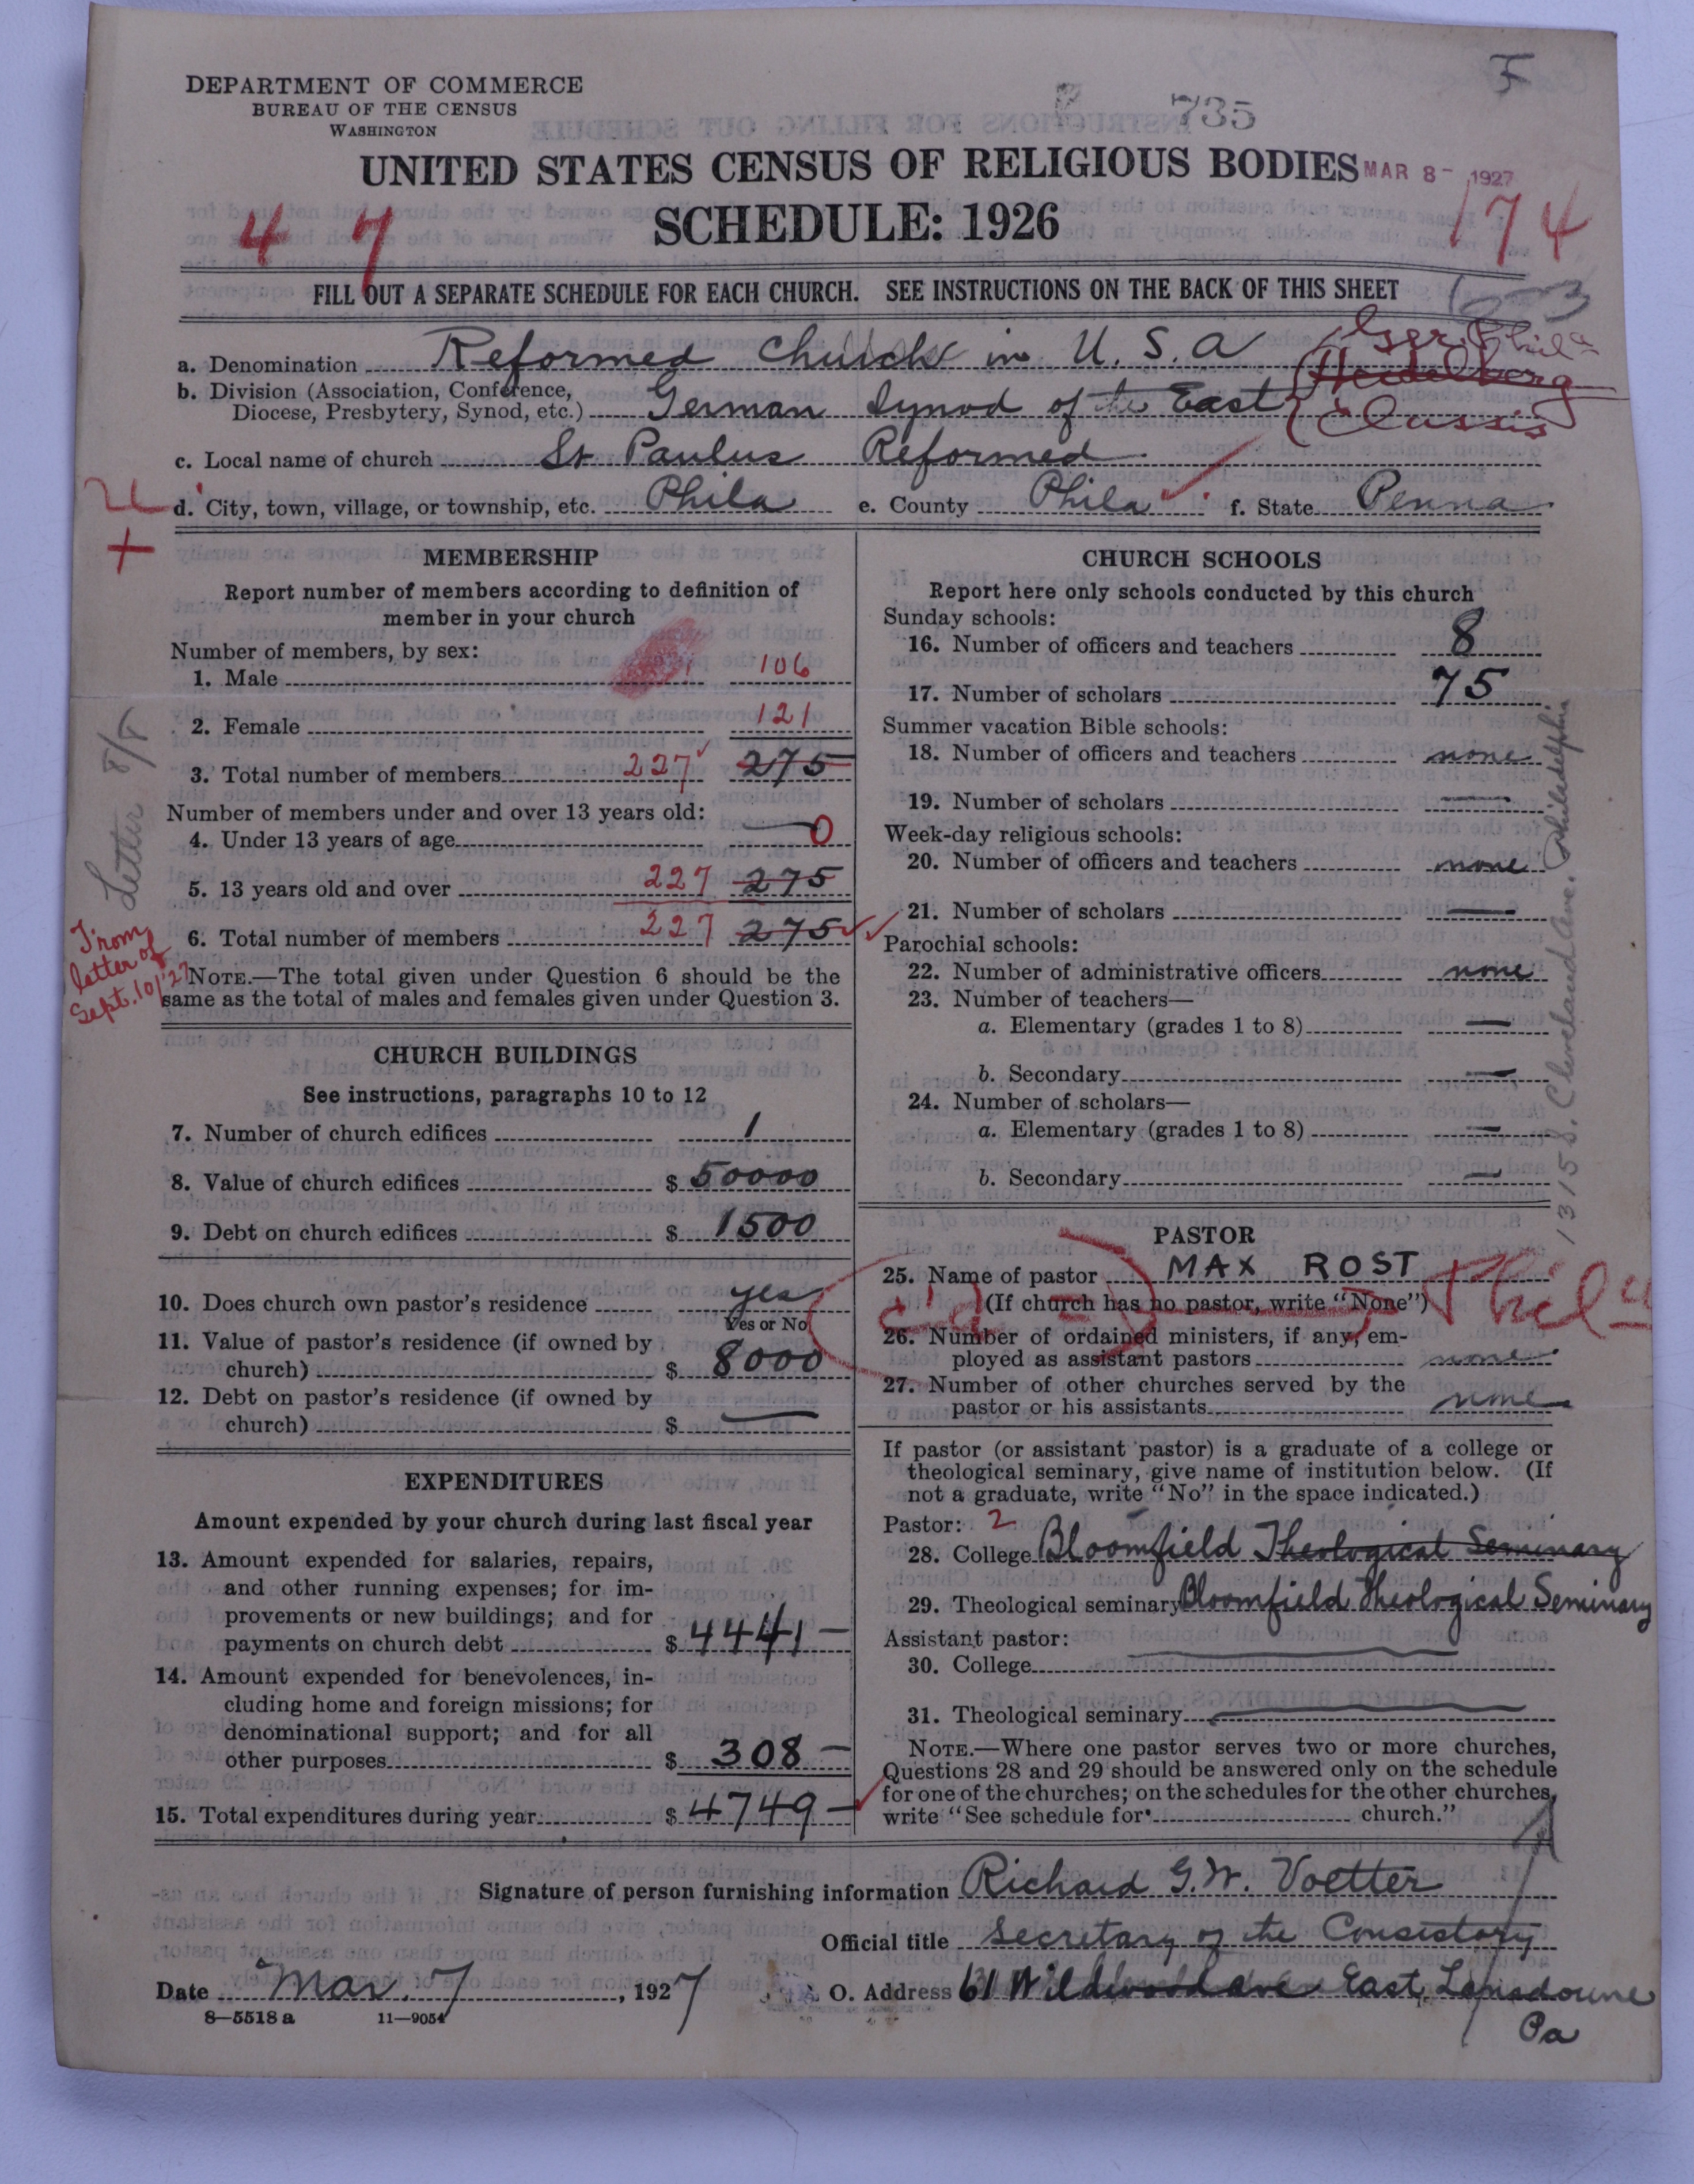 F
DEPARTMENT OF COMMERCE
BUREAU OF THE CENSUS
WASHINGTON
735
UNITED STATES CENSUS OF RELIGIOUS BODIES MAR 8- 1927
SCHEDULE: 1926
4 7
174
FILL OUT A SEPARATE SCHEDULE FOR EACH CHURCH. SEE INSTRUCTIONS ON THE BACK OF THIS SHEET
a. Denomination Reformed Church in U. S. A Ger. Phila
b. Division (Association, Conference, Heidelberg
Diocese, Presbytery, Synod, etc.) German Synod of the East Classis
c. Local name of church St Paulus Reformed
d. City, town, village, or township, etc. Phila e. County Phila f. State Penna
MEMBERSHIP
Report number of members according to definition of
member in your church
Number of members, by sex:
1. Male 106
2. Female 121
3. Total number of members 227 275
Number of members under and over 13 years old:
4. Under 13 years of age 0
5. 13 years old and over 227 275
6. Total number of members 227 275
NOTE.—The total given under Question 6 should be the
same as the total of males and females given under Question 3.
Letter 8/8
From
letter of
Sept. 10/27
CHURCH BUILDINGS
See instructions, paragraphs 10 to 12
7. Number of church edifices 1
8. Value of church edifices $ 50000
9. Debt on church edifices $ 1500
10. Does church own pastor's residence yes
Yes or No
11. Value of pastor's residence (if owned by
church) $ 8000
12. Debt on pastor's residence (if owned by
church) $ —
EXPENDITURES
Amount expended by your church during last fiscal year
13. Amount expended for salaries, repairs,
and other running expenses; for im-
provements or new buildings; and for
payments on church debt $ 4441 —
14. Amount expended for benevolences, in-
cluding home and foreign missions; for
denominational support; and for all
other purposes $ 308 —
15. Total expenditures during year $ 4749 —
CHURCH SCHOOLS
Report here only schools conducted by this church
Sunday schools:
16. Number of officers and teachers 8
17. Number of scholars 75
Summer vacation Bible schools:
18. Number of officers and teachers none
19. Number of scholars —
Week-day religious schools:
20. Number of officers and teachers none
21. Number of scholars —
Parochial schools:
22. Number of administrative officers none
23. Number of teachers—
a. Elementary (grades 1 to 8) —
b. Secondary —
24. Number of scholars—
a. Elementary (grades 1 to 8) —
b. Secondary —
1315 S. Cleveland Ave. Philadelphia
PASTOR
25. Name of pastor MAX ROST
(If church has no pastor, write "None") Phila
26. Number of ordained ministers, if any, em-
ployed as assistant pastors none
27. Number of other churches served by the
pastor or his assistants none
If pastor (or assistant pastor) is a graduate of a college or
theological seminary, give name of institution below. (If
not a graduate, write "No" in the space indicated.)
Pastor: 2
28. College Bloomfield Theological Seminary
29. Theological seminary Bloomfield Theological Seminary
Assistant pastor:
30. College —
31. Theological seminary —
NOTE.—Where one pastor serves two or more churches,
Questions 28 and 29 should be answered only on the schedule
for one of the churches; on the schedules for the other churches,
write "See schedule for church."
Signature of person furnishing information Richard G. W. Voetter
Official title Secretary of the Consistory
Date Mar. 7, 1927 O. Address 61 Wildwood ave East Lansdowne
Pa
8—5518 a 11—9054